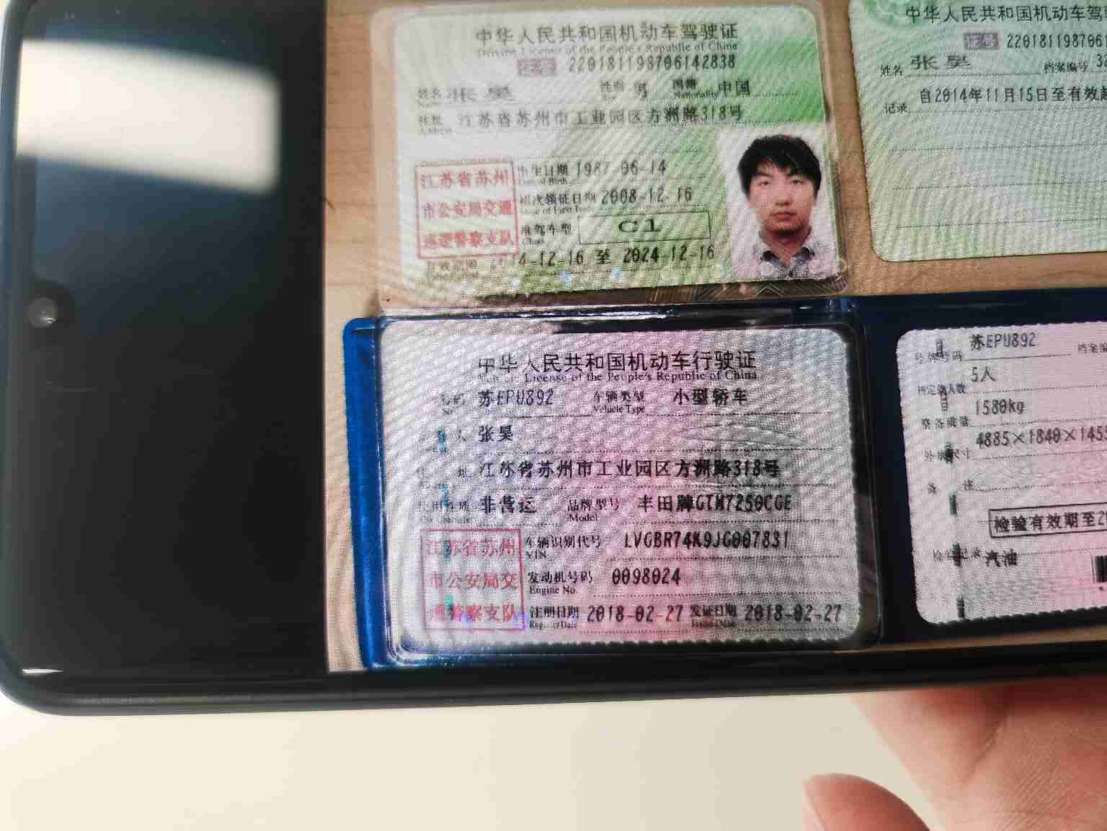 中华人民共和国机动车驾驶证
Driving License of the People's Republic of China
证号 220181198706142838
姓名 张昊 性别 男 国籍 中国
Name Nationality
住址 江苏省苏州市工业园区方洲路318号
江苏省苏州
市公安局交通
巡逻警察支队
出生日期 1987-06-14
初次领证日期 2008-12-16
准驾车型 C1
Class
4-12-16 至 2024-12-16
中华人民共和国机动车驾
证号
姓名 张昊 档案编号
记录 自2014年11月15日至有效
中华人民共和国机动车行驶证
Vehicle License of the People's Republic of China
苏EPU892 车辆类型 小型轿车
No. Vehicle Type
人 张昊
江苏省苏州市工业园区方洲路318号
非营运 品牌型号 丰田牌GTM7250CGE
Model
江苏省苏州
市公安局交
通警察支队
车辆识别代号 LVGBR74K9JG007831
VIN
发动机号码 0098024
Engine No.
注册日期 2018-02-27 发证日期 2018-02-27
Register Date Issue Date
号牌号码 苏EPU892 档案编
5人
整备质量 1580kg
4885×1840×1455
检验有效期至2
汽油